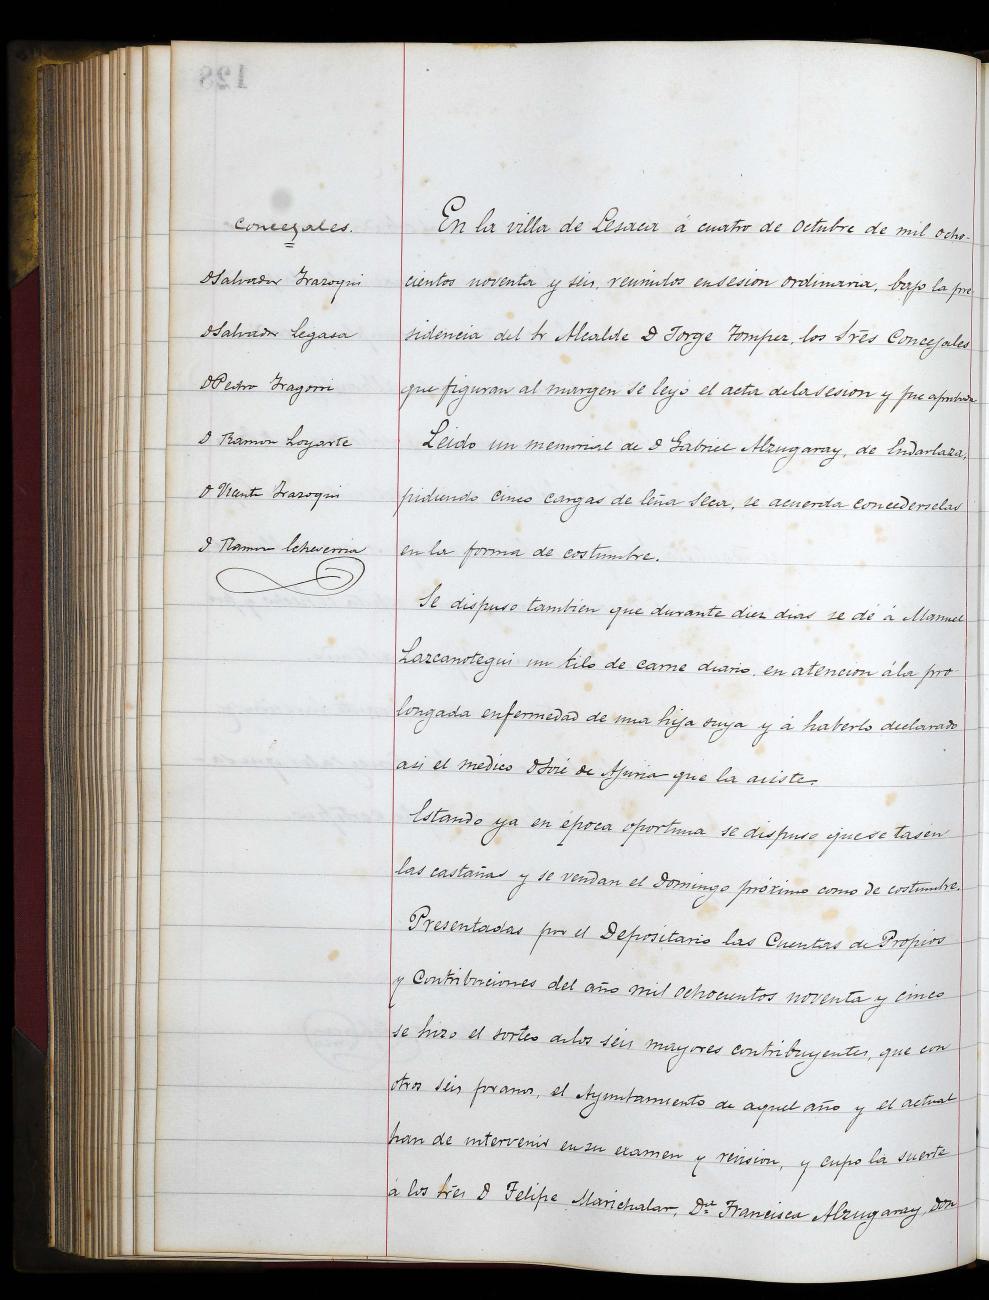 Concejales.
D Salvador Irazoqui
D Salvador Legasa
D Pedro Iragorri
D Ramon Loyarte
D Vicente Irazoqui
D. Ramon Echeverria
En la villa de Lesaca á cuatro de Octubre de mil ocho-
cientos noventa y seis, reunidos en sesion ordinaria, bajo la pre
sidencia del Sr Alcalde D Jorge los Srēs Concejales
que figuran al margen se leyó el acta de la sesion y fue aprobada
Leido un memorial de D Gabriel Alzugaray, de Endarlaza,
pidiendo cinco cargas de leña seca, se acuerda concederselas
en la forma de costumbre.
Se dispuso tambien que durante diez dias se dé á Manuel
Lazcanotegui un kilo de carne diario, en atencion á la pro
longada enfermedad de una hija suya y á haberlo declarado
asi el medico D José de Ajuria que la asiste.
Estando ya en época oportuna se dispuso que se tasen
las castañas y se vendan el Domingo próximo como de costumbre.
Presentadas por el Depositario las Cuentas de Propios
y Contribuciones del año mil ochocientos noventa y cinco
se hizo el sorteo de los séis mayores contribuyentes, que con
otros séis foranos, el Ayuntamiento de aquel año y el actual
han de intervenir en su examen y revision, y cupo la suerte
á los Srēs D Felipe Marichalar, Dª Francisca Alzugaray, Don